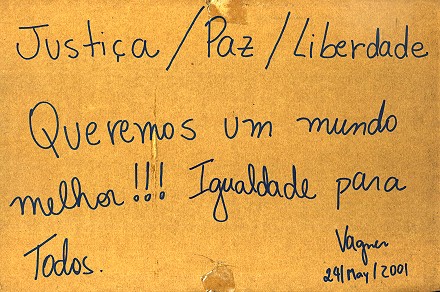 Justiça / Paz / Liberdade
Queremos um mundo
melhor!!! Igualdade para
Todos.
Vagner
24/May/2001